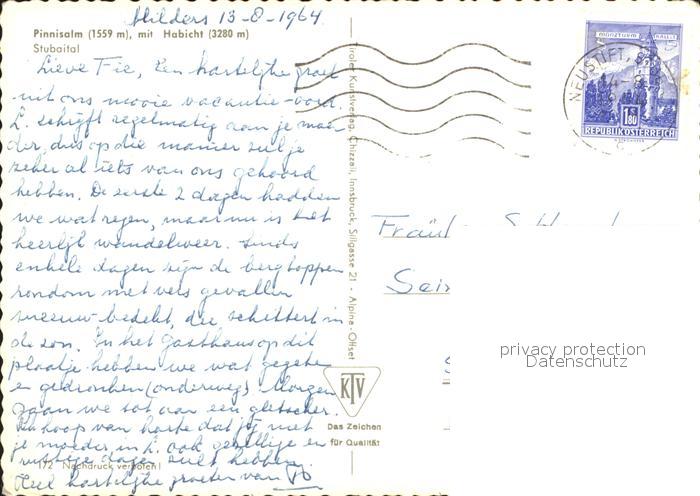 Milders 13-8-1964
Pinnisalm (1559 m), mit Habicht (3280 m)
Stubaital
Lieve Fie, Een hartelijke groet
uit ons mooie vacantie-oord.
L. schrijft regelmatig aan je moe-
der, dus op die manier zul je
zeker al iets van ons gehoord
hebben. De eerste 2 dagen hadden
we wat regen, maar nu is het
heerlijk wandelweer. Sinds
enkele dagen zijn de bergtoppen
rondom met vers gevallen
sneeuw bedekt, die schittert in
de zon. In het Gasthaus op dit
plaatje hebben we wat gegeten
en gedronken (onderweg). Morgen
gaan we tot aan een gletscher.
Ik hoop van harte dat jij met
je moeder in L. ook gezellige en
rustige dagen zult hebben.
172 Nachdruck verboten!
Heel hartelijke groeten van
Tiroler Kunstverlag Chizzali, Innsbruck, Sillgasse 21 - Alpina-Offset
KTV
Das Zeichen
für Qualität
NEUSTIFT,
MÜNZTURM HALL I.T.
S 1.80
REPUBLIK ÖSTERREICH
Fräul
privacy protection
Datenschutz